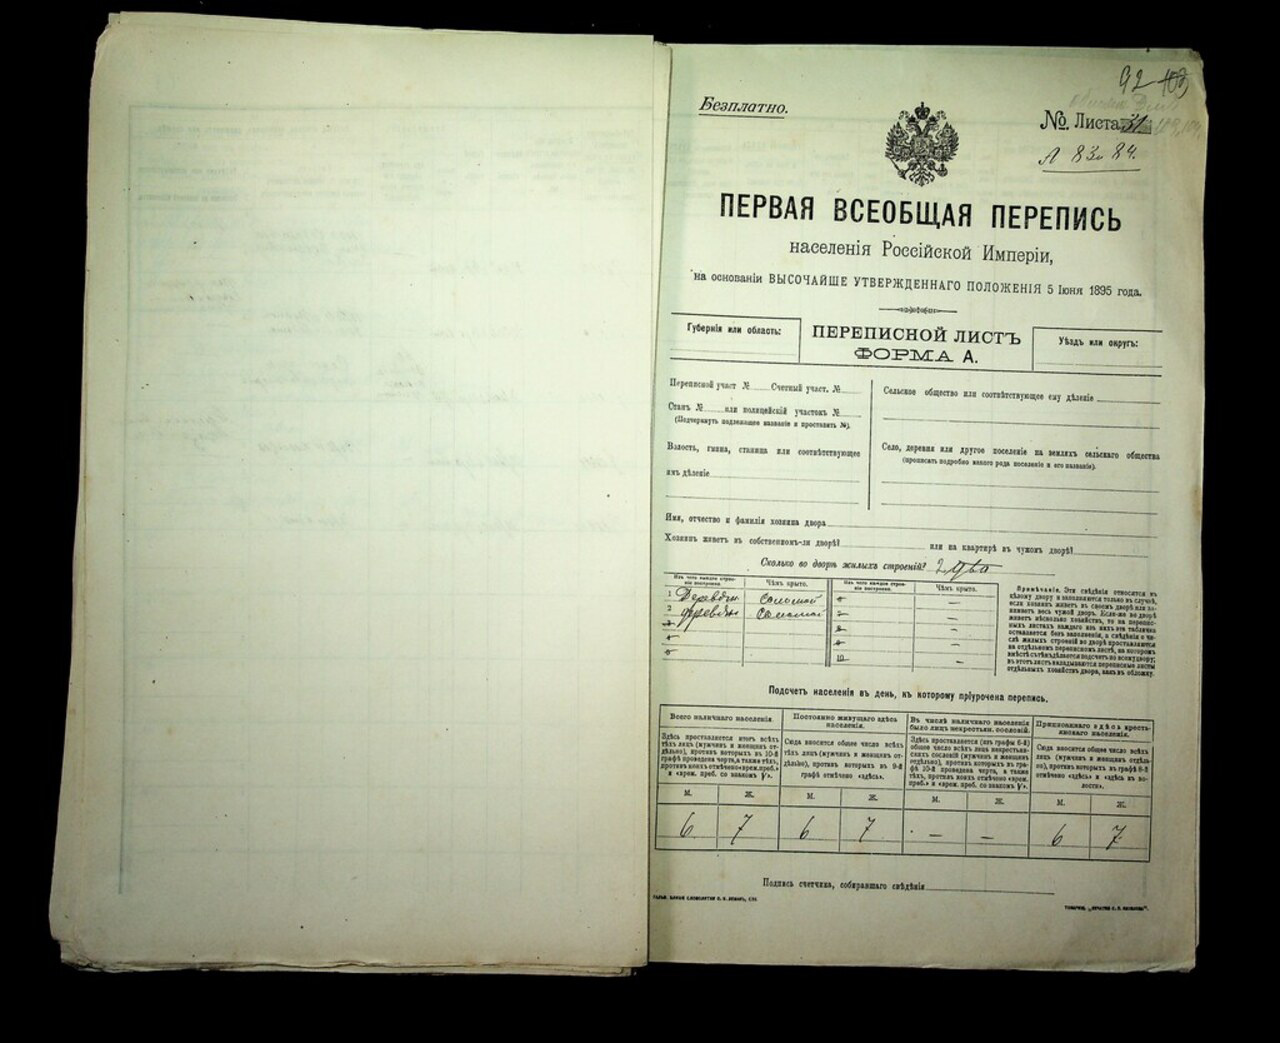 92 103
Безплатно.
№. Листа 31
Л 83 и 84.
ПЕРВАЯ ВСЕОБЩАЯ ПЕРЕПИСЬ
населенія Россійской Имперіи,
на основаніи ВЫСОЧАЙШЕ УТВЕРЖДЕННАГО ПОЛОЖЕНІЯ 5 Іюня 1895 года.
Губернія или область:
ПЕРЕПИСНОЙ ЛИСТЪ
ФОРМА А.
Уѣздъ или округъ:
Переписной участ № Счетный участ. №
Станъ № или полицейскій участокъ №
(Подчеркнуть надлежащее названіе и проставить №).
Волость, гмина, станица или соотвѣтствующее
имъ дѣленіе
Сельское общество или соотвѣтствующее ему дѣленіе
Село, деревня или другое поселеніе на земляхъ сельскаго общества
(прописать подробно какого рода поселеніе и его названіе).
Имя, отчество и фамилія хозяина двора
Хозяинъ живетъ въ собственномъ-ли дворѣ? или на квартирѣ въ чужомъ дворѣ?
Сколько во дворѣ жилыхъ строеній? 2 два
Изъ чего каждое строеніе построено. Чѣмъ крыто. Изъ чего каждое строеніе построено. Чѣмъ крыто.
1 Деревян соломой 6 —
2 деревян соломой 7 —
3 8 —
4 9 —
5 10 —
Примѣчаніе. Эти свѣдѣнія относятся къ
цѣлому двору и заполняются только въ случаѣ,
если хозяинъ живетъ въ своемъ дворѣ или занимаетъ весь чужой дворъ. Если-же во дворѣ
живетъ нѣсколько хозяйствъ, то на переписныхъ листахъ каждаго изъ нихъ эта табличка
оставляется безъ заполненія, а свѣдѣнія о числѣ жилыхъ строеній во дворѣ проставляются
на отдѣльномъ переписномъ листѣ, на которомъ
вмѣстѣ съ тѣмъ дѣлается подсчетъ по всему двору;
въ этотъ листъ вкладываются переписные листы
отдѣльныхъ хозяйствъ двора, какъ въ обложку.
Подсчетъ населенія въ день, къ которому пріурочена перепись.
Всего наличнаго населенія.
Здѣсь проставляется итогъ всѣхъ
тѣхъ лицъ (мужчинъ и женщинъ отдѣльно), противъ которыхъ въ 10-й
графѣ проведена черта, а также тѣхъ,
противъ коихъ отмѣчено «врем. преб.»
и «врем. преб. со знакомъ V».
Постоянно живущаго здѣсь
населенія.
Сюда вносится общее число всѣхъ
тѣхъ лицъ (мужчинъ и женщинъ отдѣльно), противъ которыхъ въ 9-й
графѣ отмѣчено «здѣсь».
Въ числѣ наличнаго населенія
было лицъ некрестьян. сословій.
Здѣсь проставляется (изъ графы 6-й)
общее число всѣхъ лицъ некрестьянскихъ сословій (мужчинъ и женщинъ
отдѣльно), противъ которыхъ въ графѣ 10-й проведена черта, а также
тѣхъ, противъ коихъ отмѣчено «врем.
преб.» и «врем. преб. со знакомъ V».
Приписаннаго здѣсь крестьянскаго населенія.
Сюда вносится общее число всѣхъ
лицъ (мужчинъ и женщинъ отдѣльно), противъ коихъ въ графѣ 8-й
отмѣчено «здѣсь» и «здѣсь въ волости».
М. Ж. М. Ж. М. Ж. М. Ж.
6 7 6 7 — — 6 7
Подпись счетчика, собиравшаго свѣдѣнія